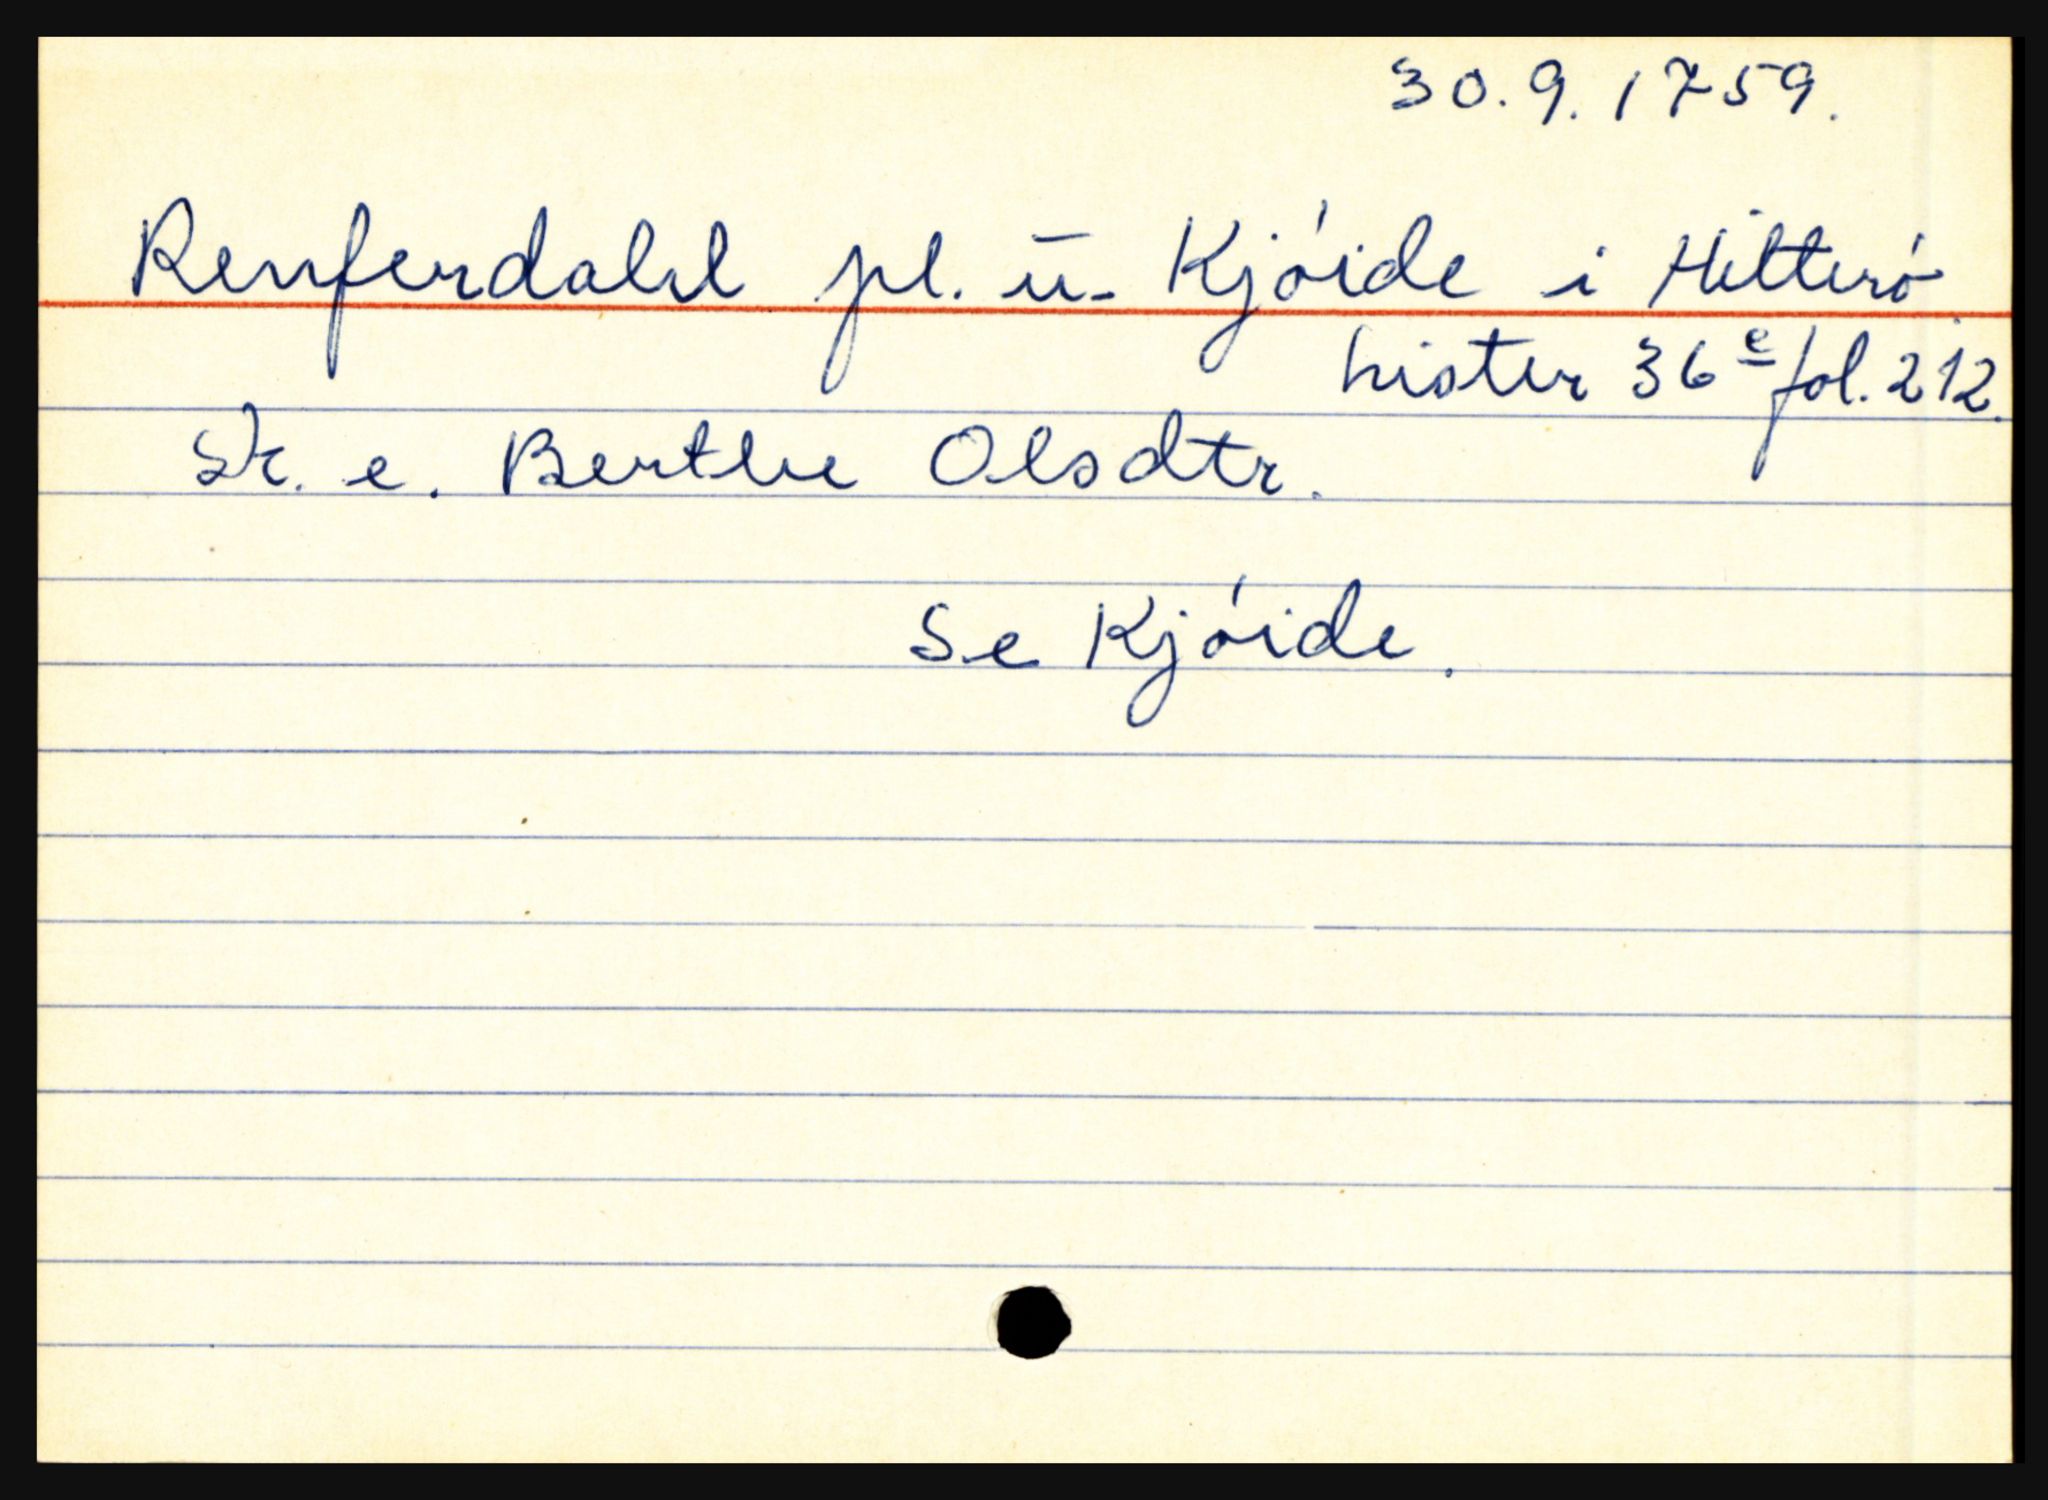 30.9.1759.
Renferdahl pl. ū. Kjóide i Hitteró
Lister 36 e fol. 212.
Sk. e. Berthe Olsdtr.
Se Kjóide.